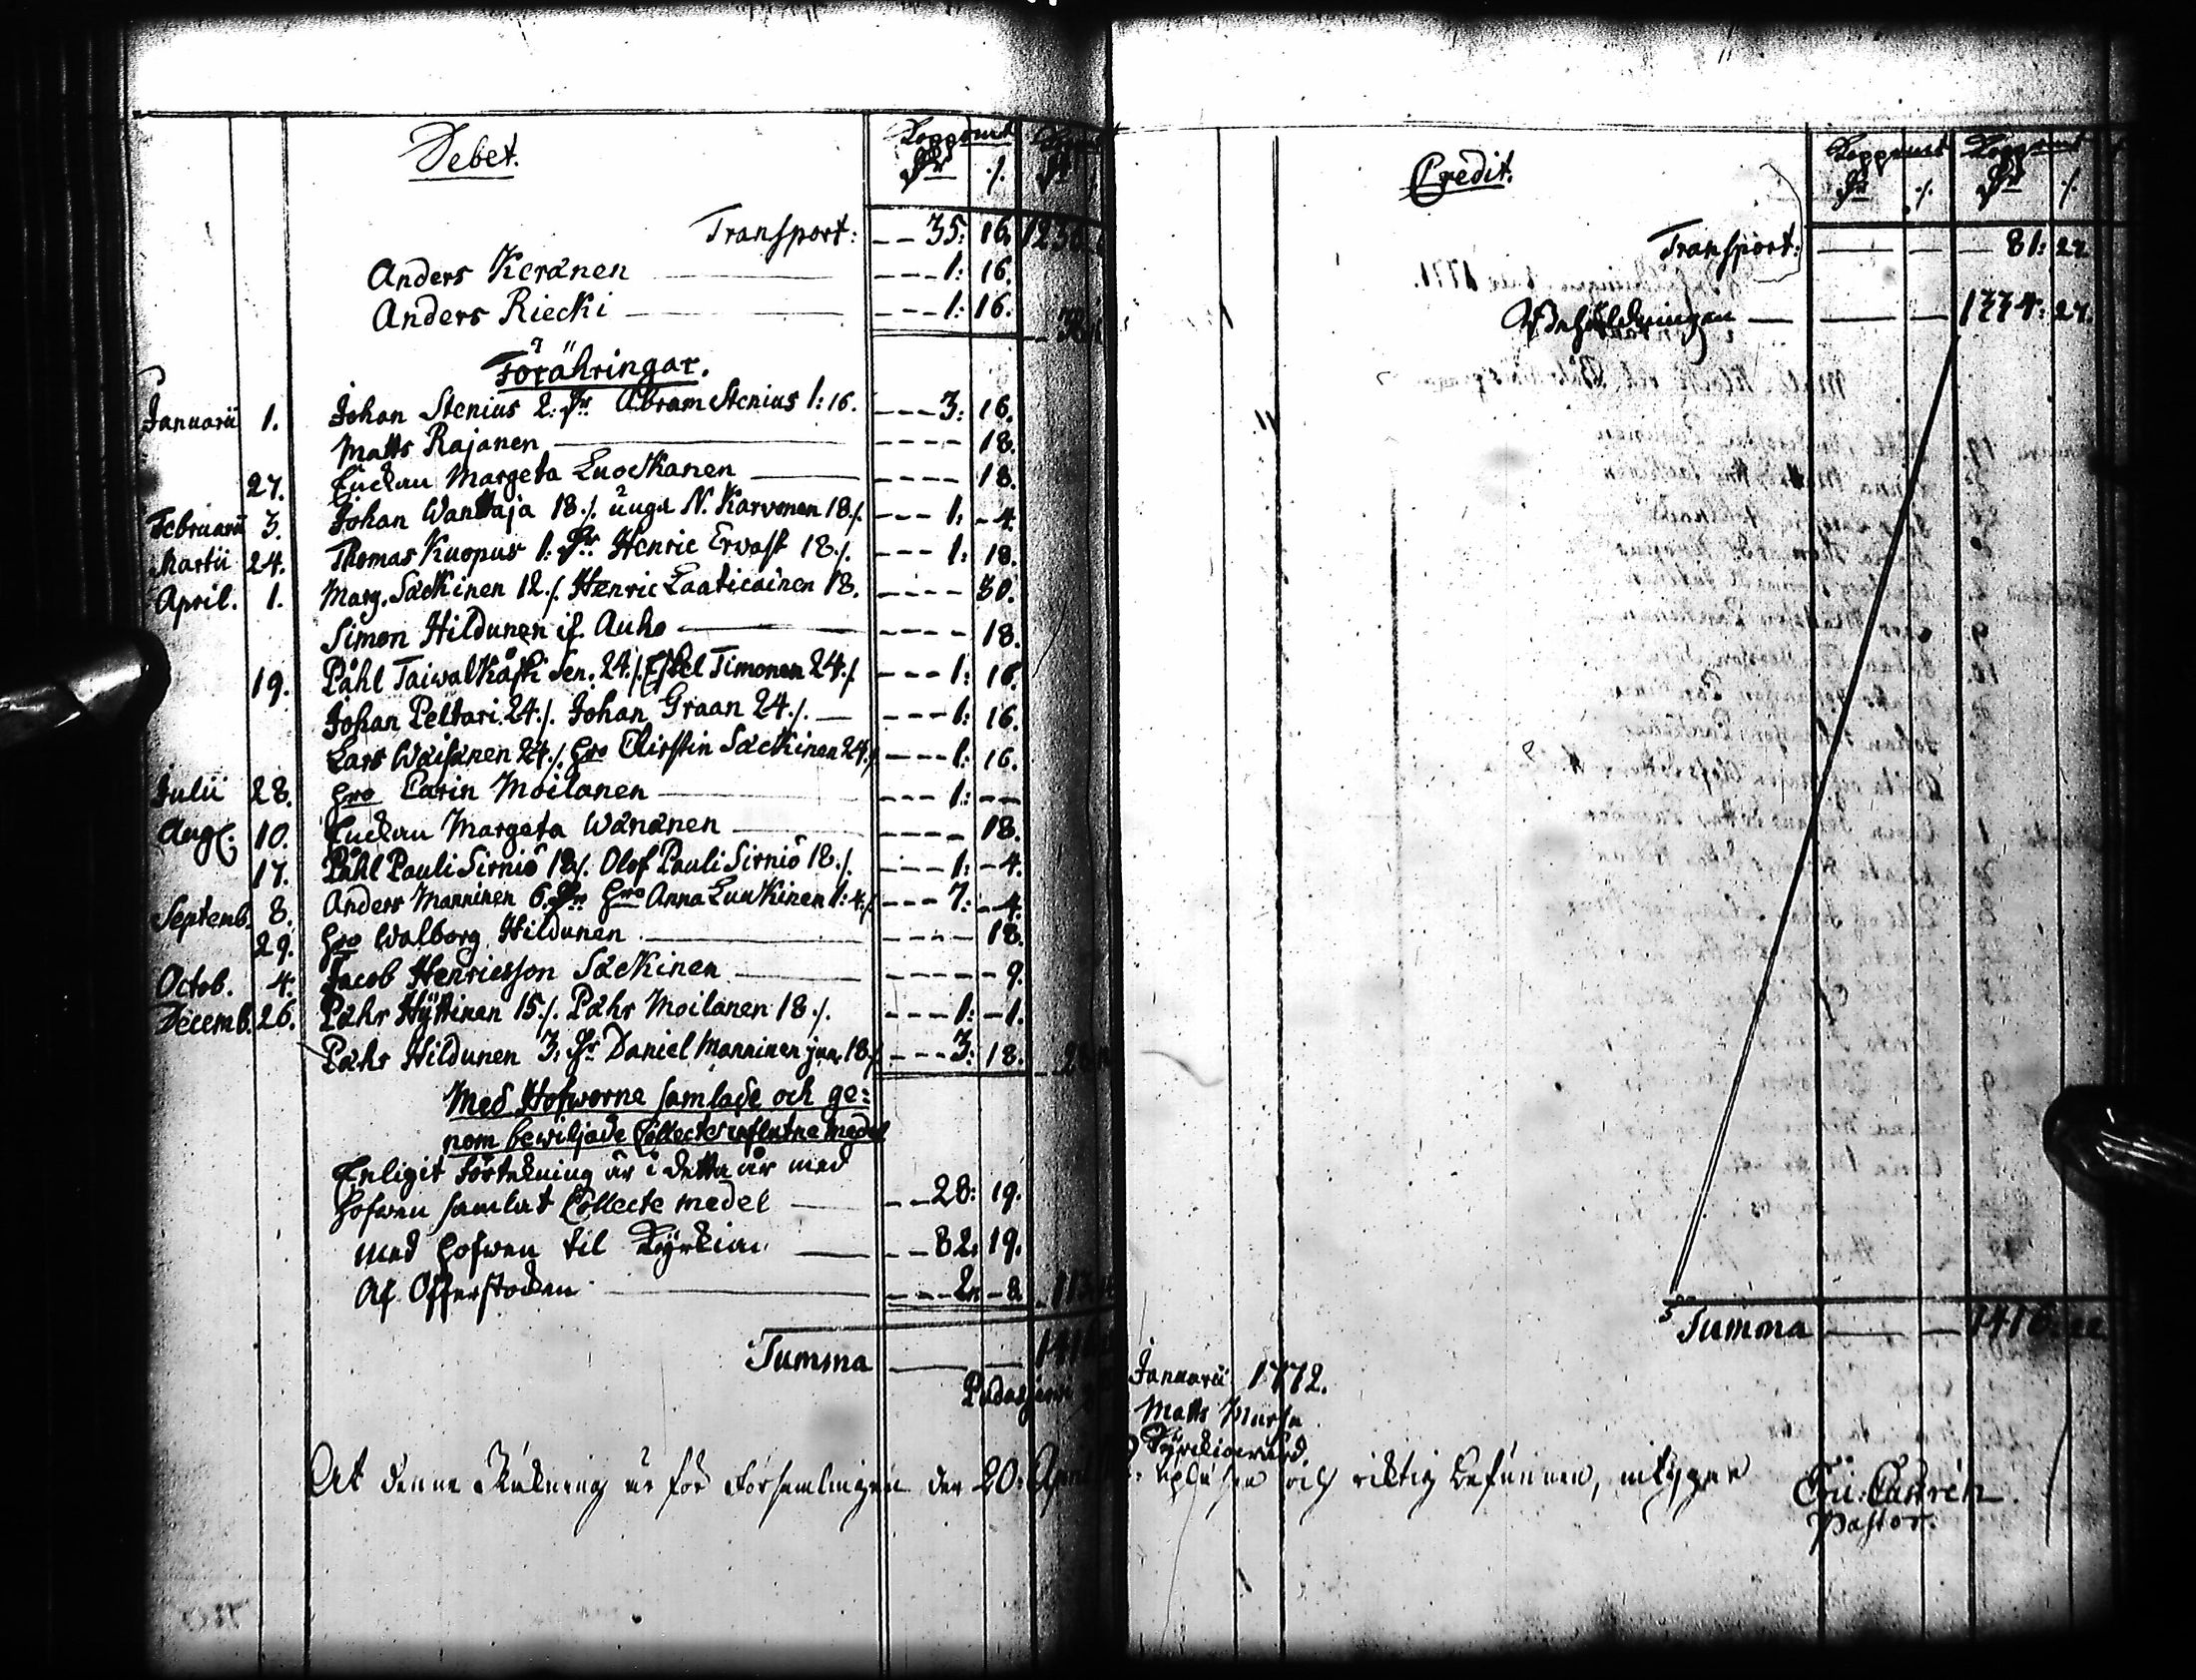 Debet.
Koppmt
Dr ./.
Transport: -- 35: 16.
Anders Keränen --- 1: 16.
Anders Riecki --- 1: 16.
Förähringar.
Januarii 1. Johan Stenius 2: Dr Abram Stenius 1: 16. --- 3: 16.
Matts Rajanen ---- 18.
27. Enckan Margeta Luockanen ---- 18.
Februarii 3. Johan Wanttaja 18 ./. unga N. Karvonen 18 ./. --- 1: - 4.
Martii 24. Thomas Kuopus 1: Dr Henric Ervast 18 ./. --- 1: 18.
April. 1. Marg. Säckinen 12 ./. Henric Laaticainen 18. ---- 30.
Simon Hildunen if. Auho ---- 18.
19. Påhl Taiwalkåski sen. 24 ./. Esbel Timonen 24 ./. --- 1: 16.
Johan Peltari 24 ./. Johan Graan 24 ./. --- 1: 16.
Lars Wäisänen 24 ./. Hro Chirstin Säckinen 24 ./. --- 1: 16.
Julii 28. Hro Carin Moilanen --- 1: --
Aug. 10. Enckan Margeta Wänänen ---- 18.
17. Påhl Pauli Sirniö 18 ./. Olof Pauli Sirniö 18 ./. --- 1: - 4.
Septemb. 8. Anders Manninen 6. Dr Hro Anna Luukinen 1: 4 ./. --- 7: - 4.
29. Hro Walborg Hildunen ---- 18.
Octob. 4. Jacob Henricsson Säckinen ---- - 9.
Decemb. 26. Pähr Hÿttinen 15 ./. Pähr Moilanen 18 ./. --- 1: - 1.
Pähr Hildunen 3: Dr Daniel Manninen jun. 18 ./. --- 3: 18.
Med Hofworne samlade och ge:
nom bewiljade Collecter influtne medel
Enligit förtekning är i detta år med
hofwen samlat Collecte medel -- 28: 19.
med hofwen til Kyrkian -- 82: 19.
Af Offerstocken --- 2: - 8.
Summa
Credit.
Koppmt Koppmt
Dr ./. Dr ./.
Transport: 81: 27.
Behållningen 1334: 27.
Summa 1416: 22
Pudasjervi Januarii 1772.
Matts Mursu
Kyrckiowärd.
At denne Räkning är för Församlingen den 20: April upläsen och riktig befunnen, intygar Eri: Castrén.
Pastor.